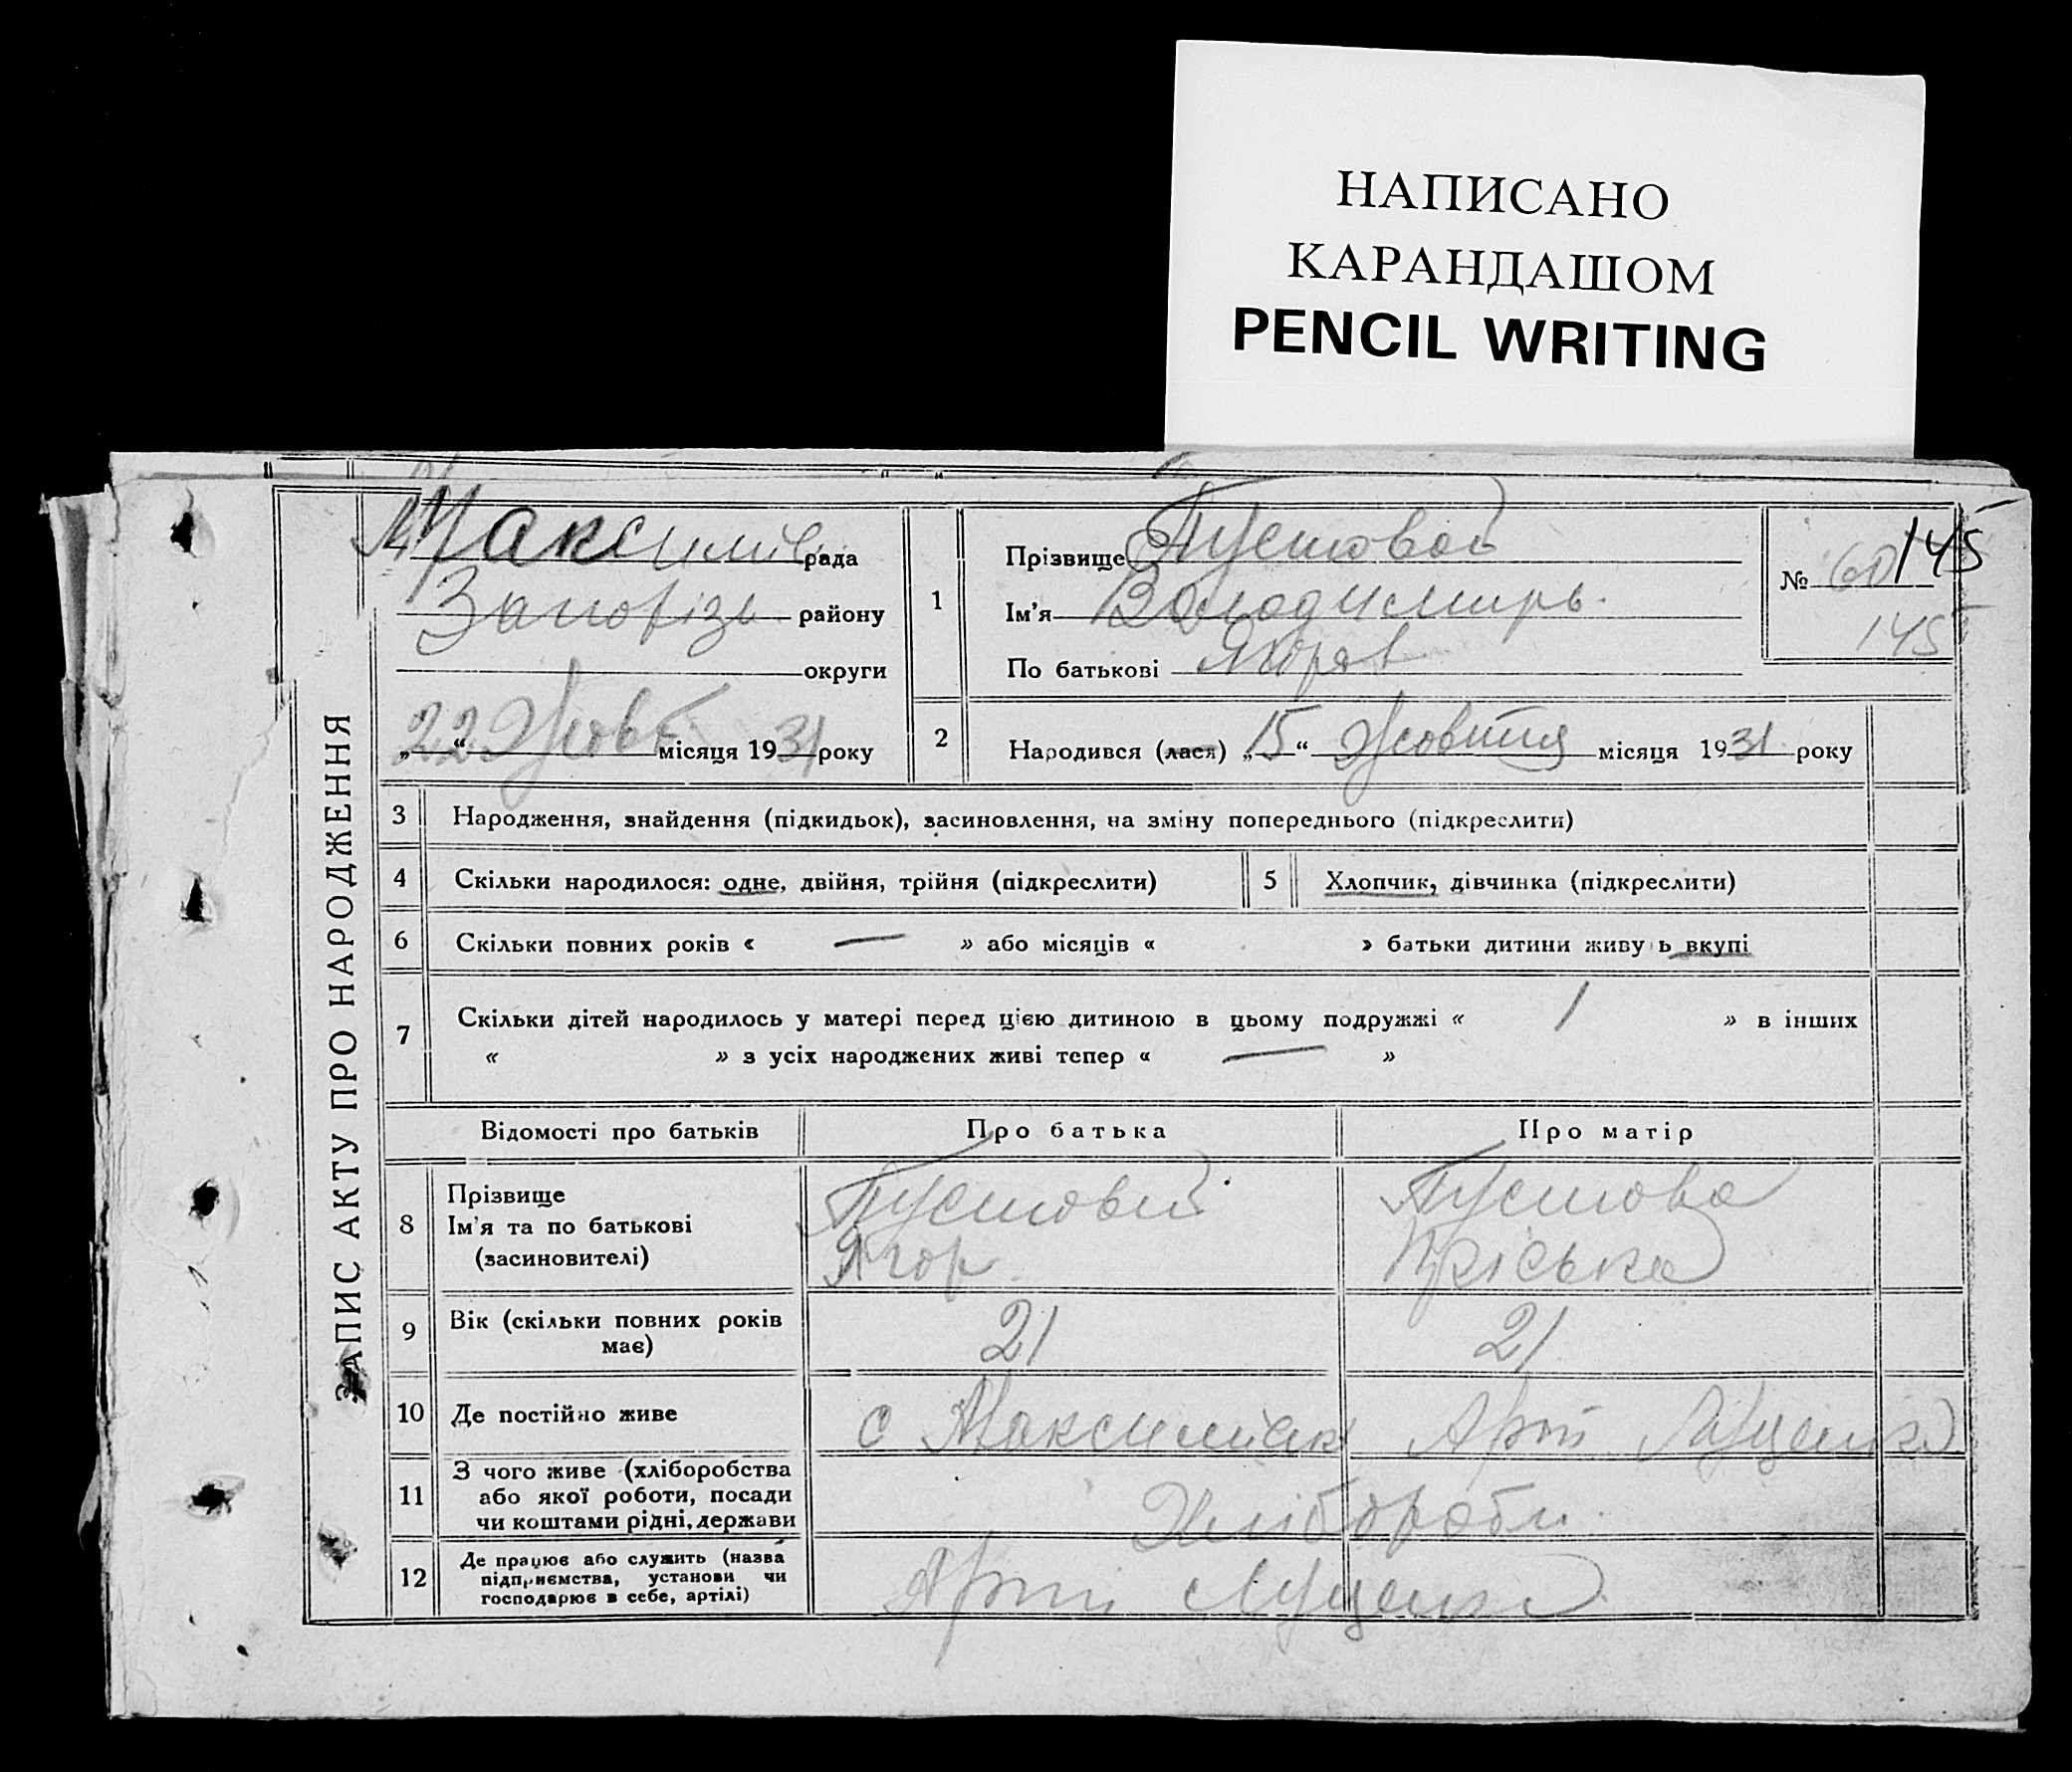 НАПИСАНО
КАРАНДАШОМ
PENCIL WRITING
ЗАПИС АКТУ ПРО НАРОДЖЕННЯ
рада
Запоріз. району
округи
„22“ Жовт місяця 1931 року
1
Прізвище Пустовой
Ім'я Володимирь.
По батькові
№ 60 145
145
2
Народився (лася) „15“ Жовтня місяця 1931 року
3
Народження, знайдення (підкидьок), засиновлення, на зміну попереднього (підкреслити)
4
Скільки народилося: одне, двійня, трійня (підкреслити)
5
Хлопчик, дівчинка (підкреслити)
6
Скільки повних років « — » або місяців « » батьки дитини живу ь вкупі
7
Скільки дітей народилось у матері перед цією дитиною в цьому подружжі « 1 » в інших
« » з усіх народжених живі тепер « — »
Відомості про батьків
Про батька
Про матір
8
Прізвище
Ім'я та по батькові
(засиновителі)
Пустовий
Ягор
Пустова
Пріська
9
Вік (скільки повних років
має)
21
21
10
Де постійно живе
с Арт. Луценка
11
З чого живе (хліборобства
або якої роботи, посади
чи коштами рідні, держави
Хлібороби.
12
Де працює або служить (назва
підприємства, установи чи
господарює в себе, артілі)
Арт. Луценка